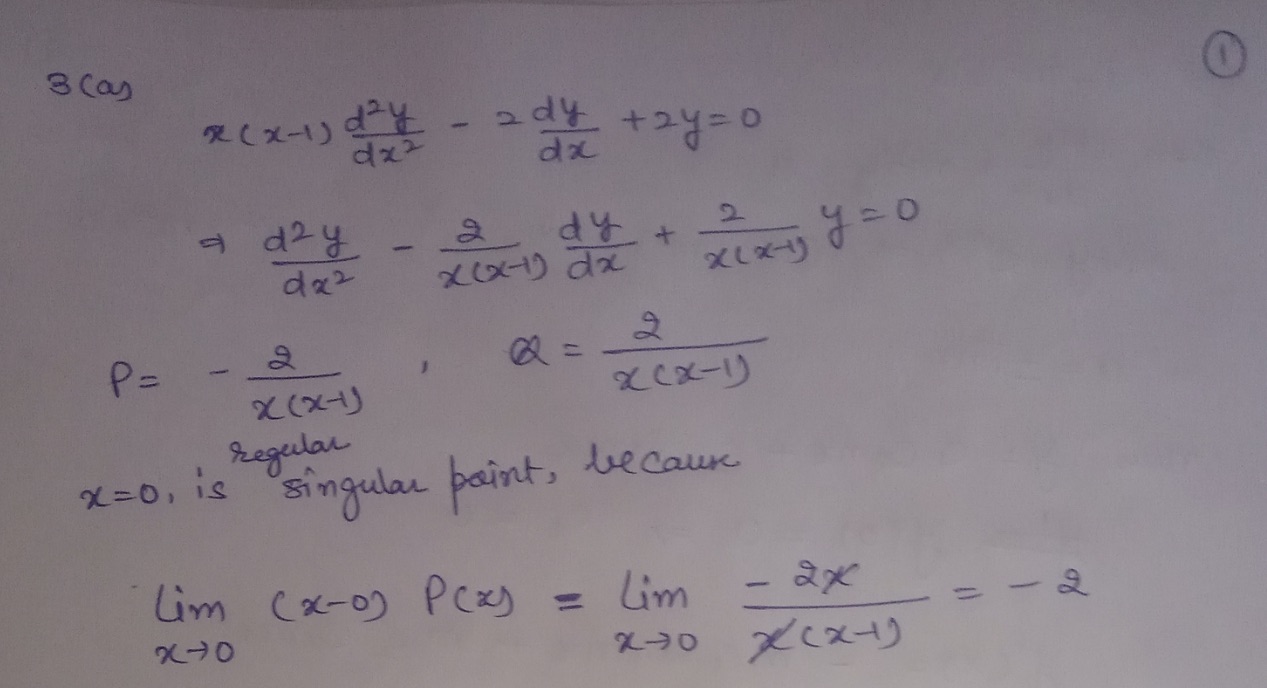 ①
3(a)
x(x-1) d²y/dx² - 2 dy/dx + 2y = 0
⇒ d²y/dx² - 2/x(x-1) dy/dx + 2/x(x-1) y = 0
P = - 2/x(x-1) , Q = 2/x(x-1)
x=0, is regular singular point, because
lim x→0 (x-0) P(x) = lim x→0 - 2x/x(x-1) = - 2